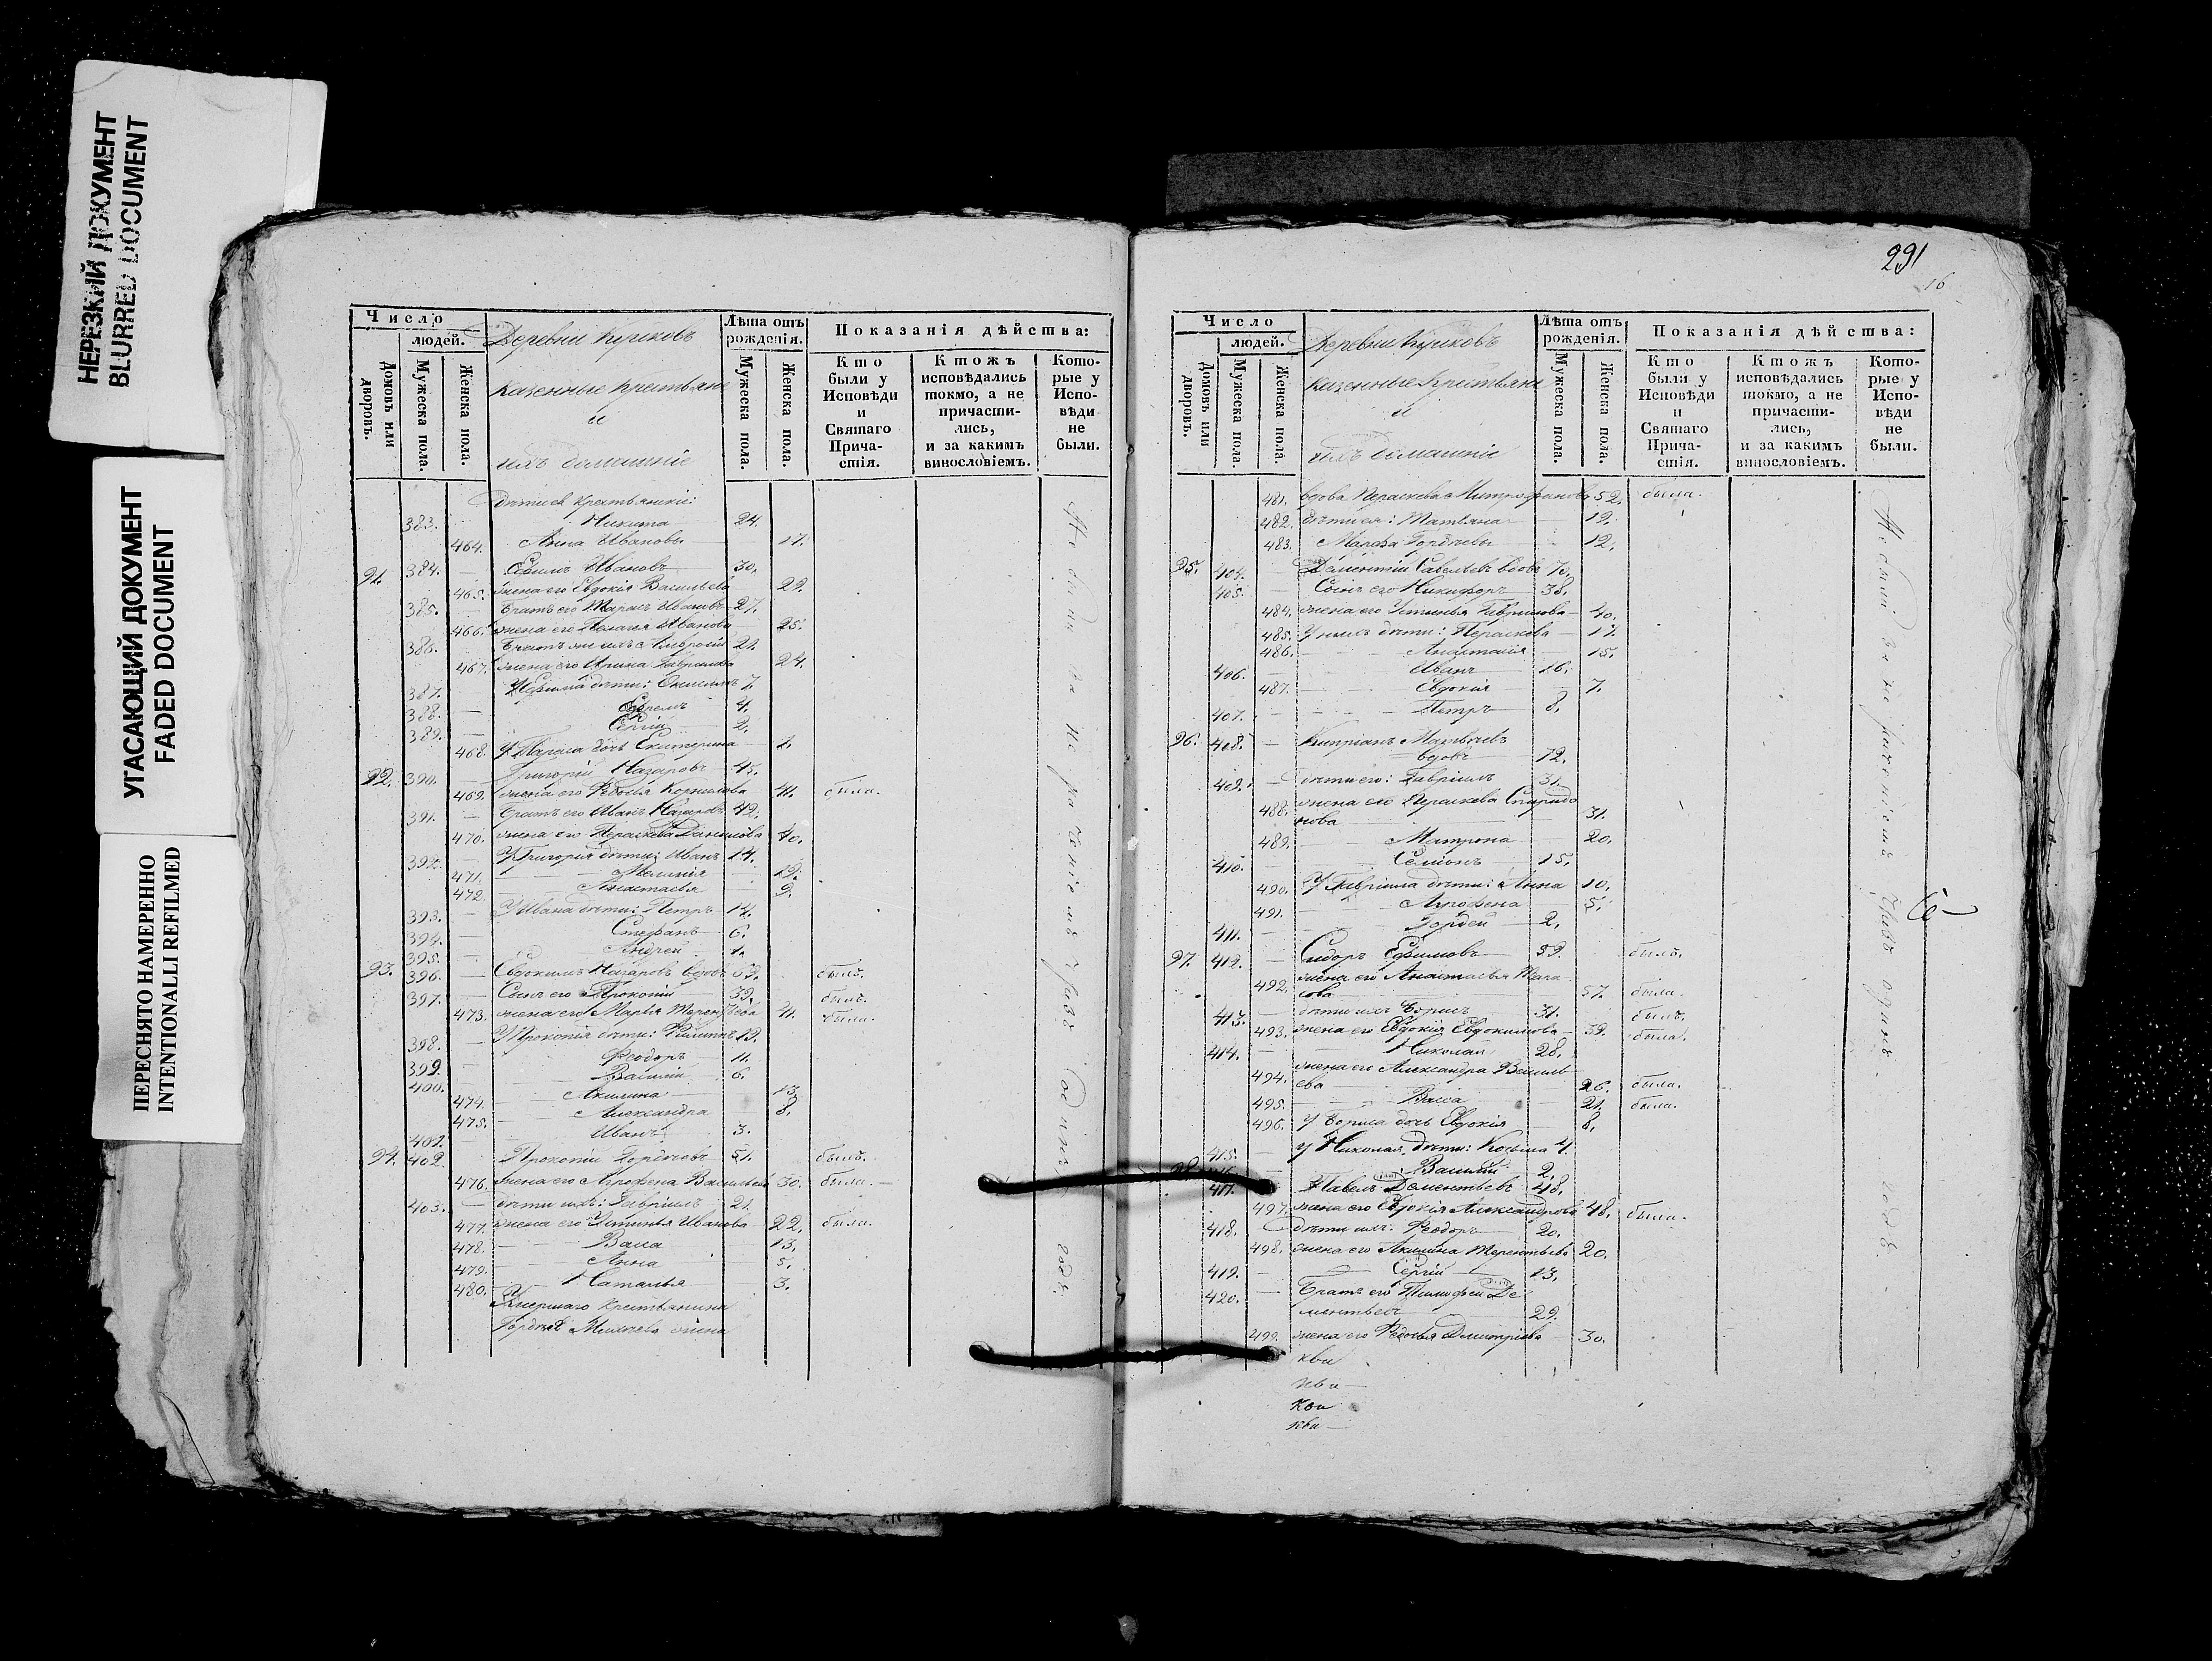 НЕРЕЗКИЙ ДОКУМЕНТ
BLURRED DOCUMENT
УГАСАЮЩИЙ ДОКУМЕНТ
FADED DOCUMENT
ПЕРЕСНЯТО НАМЕРЕННО
INTENTIONALLI REFILMED
Число
людей.
Домовъ или дворовъ.
Мужеска пола.
Женска пола.
Деревни
казенные крестьяне
и
ихъ домашніе
Лѣта отъ рожденія.
Мужеска пола.
Женска пола.
Показанія дѣйства:
Кто были у Исповѣди и Святаго Причастія.
Ктожъ исповѣдались токмо, а не причастились, и за какимъ винословіемъ.
Которые у Исповѣди не были.
383. Никита 24.
464. Анна Иванова 17.
91. 384. Ивановъ 30.
465. жена его Евдокія Васильева 29.
385. Братъ его Тарасъ Ивановъ 27.
466. жена его Пелагея Иванова 25.
386. 21.
467. жена его Ирина Гаврилова 24.
387. дѣти: 7.
388. 4.
389. Сергій 2.
468. У Тараса дочь Екатерина 1.
92. 390. Григорій Назаровъ 45.
469. жена его Федосья Корнилова 41. была.
391. Братъ его Иванъ Назаровъ 42.
470. жена его Параскева Данилова 40.
392. У Григорія дѣти: Иванъ 14.
471. 12.
472. Анастасья 9.
393. У Ивана дѣти: Петръ 14.
394. Стефанъ 6.
395. Андрей 1.
93. 396. Евдокимъ Назаровъ вдовъ былъ.
397. Сынъ его Прокопій 39. былъ.
473. жена его Марья Терентьева 41. была.
398. У Прокопія дѣти: Филиппъ 13.
399. Феодоръ 11.
400. Василій 6.
474. Акилина 13.
475. Александра 8.
401. Иванъ 3.
94. 402. Прокопій Гордѣевъ 51. былъ.
476. жена его Агрофена Васильева 50. была.
403. дѣти ихъ: Гавріилъ 21.
477. жена его Устинья Иванова 22. была.
478. Васса 13.
479. Анна 5.
480. Наталья 3.
Умершаго крестьянина
жена
Не были за нераченіемъ
291
16
Число
людей.
Домовъ или дворовъ.
Мужеска пола.
Женска пола.
Деревни
казенные крестьяне
и
ихъ домашніе
Лѣта отъ рожденія.
Мужеска пола.
Женска пола.
Показанія дѣйства:
Кто были у Исповѣди и Святаго Причастія.
Ктожъ исповѣдались токмо, а не причастились, и за какимъ винословіемъ.
Которые у Исповѣди не были.
481. вдова Параскева Митрофанова 52. была.
482. дѣти ея: Татьяна 19.
483. Марфа Гордѣевы 12.
95. 404. Дементій Савельевъ вдовъ 70.
405. Сынъ его Никифоръ 38.
484. жена его Устинья Гаврилова 40.
485. У нихъ дѣти: Параскева 17.
486. Анастасія 15.
406. Иванъ 16.
487. Евдокія 7.
407. Петръ 8.
96. 408. Кипріанъ Матвѣевъ
вдовъ 72.
409. дѣти его: Гавріилъ 31.
488. жена его Параскева Спиридо
нова 31.
489. Матрона 20.
410. Семіонъ 15.
490. У Гавріила дѣти: Анна 10.
491. Агрофена 5.
411. Гордей 2.
97. 412. Сидоръ Ефимовъ 59. былъ.
492. жена его Анастасья Тара
сова 57. была.
413. дѣти ихъ Борисъ 31. былъ.
493. жена его Евдокія Евдокимова 32. была.
414. Николай 28.
494. жена его Александра Василь
ева 26. была.
495. Васса 21. была.
496. У Бориса дочь Евдокія 8.
415. У Николая дѣти: Козьма 4.
Василій 2.
417. Павелъ Дементьевъ 48.
497. жена его Евдокія Александрова 48. была.
418. дѣти ихъ: Феодоръ 20.
498. жена его Акилина Терентьева 20.
419. Сергій 13.
420. Братъ его Тимофей Де
ментьевъ 29.
499. жена его Федосья Дмитріева 30.
Не были за нераченіемъ